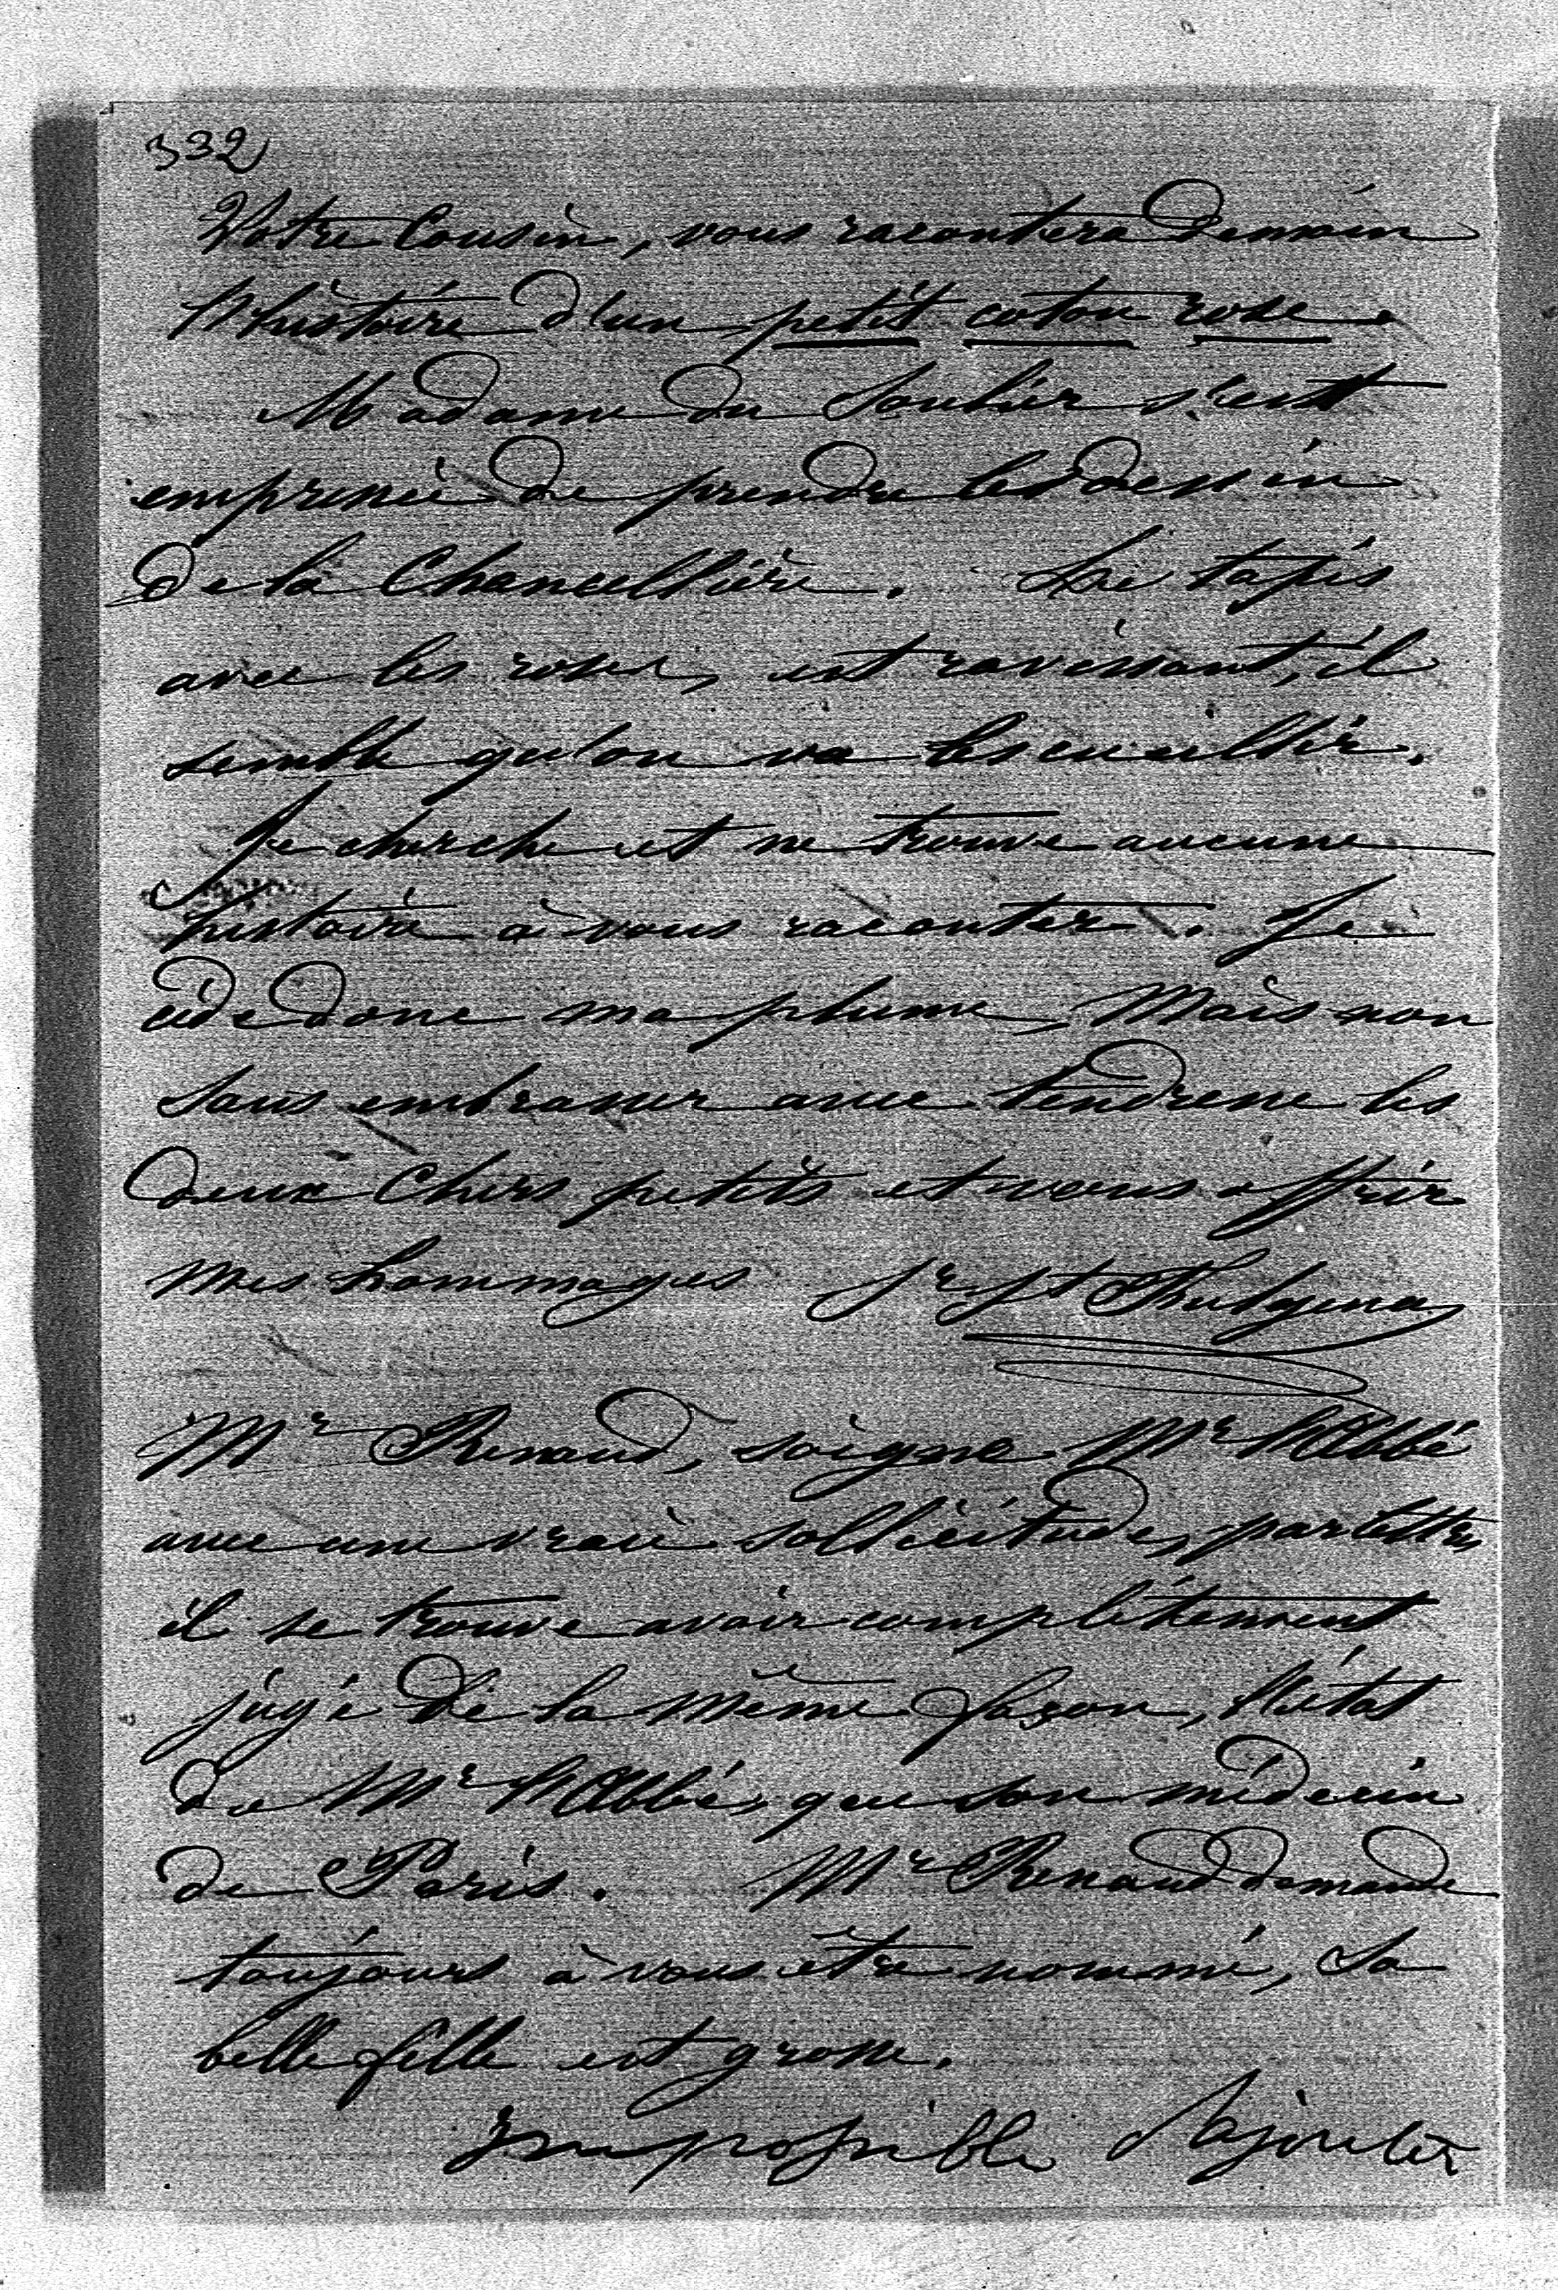 332
Votre Cousin, vous racontera demain
l'histoire d'un petit coton rose.
Madame du Soulier s'est
empressée de prendre les dessin
de la Chancellière. Le tapis
avec les roses, est ravissant, il
semble qu'on va les cueillir.
Je cherche et ne trouve aucune
histoire à vous raconter. Je
cède donc ma plume, Mais non
sans embrasser avec tendresse les
deux Chers petits et vous offrir
mes hommages
Mr Renaud, soigne Mr l'Abbé
avec une vraie sollicitude, par lettre
il se trouve avoir complètement
jugé de la même façon, l'état
de Mr l'Abbé, que son médecin
de Paris. Mr Renaud demande
toujours à vous être nommé, Sa
belle fille est grosse.
Impossible d'ajouter